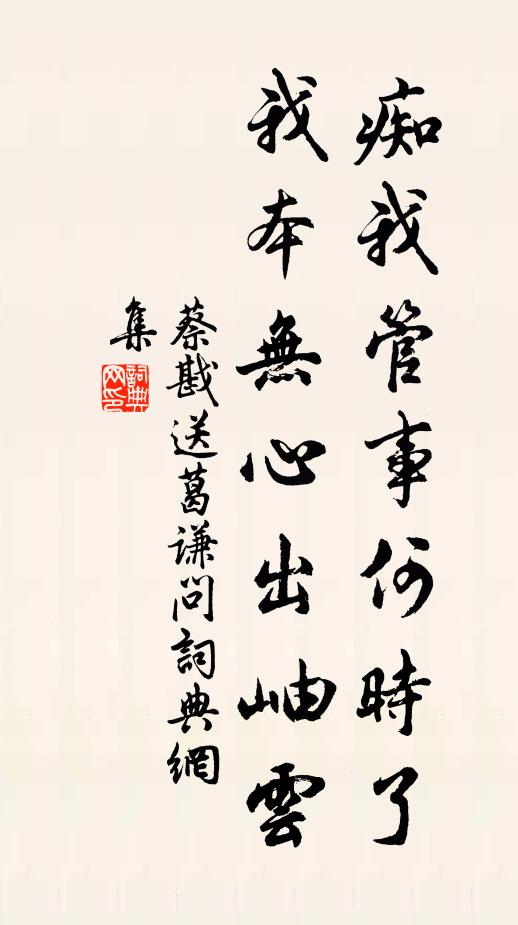 痴我管事何時了
我本無心出岫雲
蔡戡送葛謙問詞典網
集
詞典网印